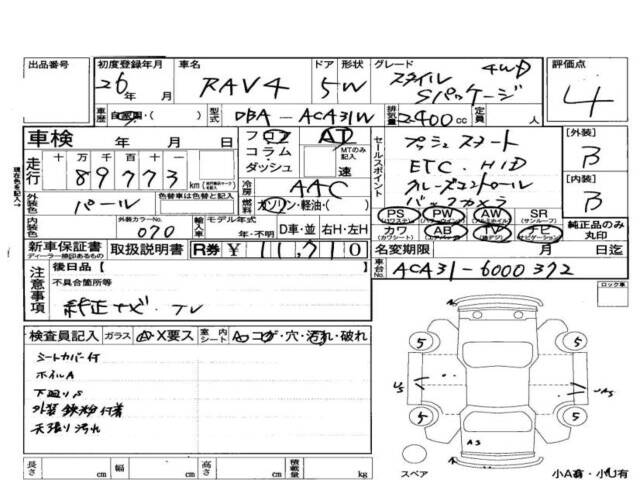 出品番号
初度登録年月
26年 月
車名
RAV4
ドア
形状
5W
グレード
スタイル
Sパッケージ
4WD
評価点
4
車歴
自家用・( )
型式
DBA - ACA31W
排気量
2400cc
定員
人
車検 年 月 日
走行
十 万 千 百 十
89773
km
フロア
コラム
ダッシュ
AT
MTのみ記入
速
セールスポイント
プッシュスタート
ETC. HID
クルーズコントロール
バックカメラ
[外装]
B
[内装]
B
冷房
AAC
外装色
パール
色替車は色替と記入
燃料
ガソリン・軽油・( )
内装色
外装カラーNo.
070
輸入車
モデル年式
年・不明
D車・並
右H・左H
PS
(パワステ)
PW
AW
SR
(サンルーフ)
カワ
(カワシート)
AB
TV
ナビ
純正品のみ
丸印
新車保証書
ディーラー捺印あるもの
取扱説明書
R券
¥11,710
名変期限 月 日迄
車台No.
ACA31-6000372
注意事項
後日品[
不具合箇所等
純正ナビ. TV
ロック車
検査員記入
ガラス
A・X要ス
室内
シート
コゲ・穴・汚れ・破れ
シートカバー付
ホイルA
下廻りS
外装鉄粉付着
天張り汚れ
5
5
5
5
AS
スペア
小A有・小U有
長さ cm
幅 cm
高さ cm
積載量 kg